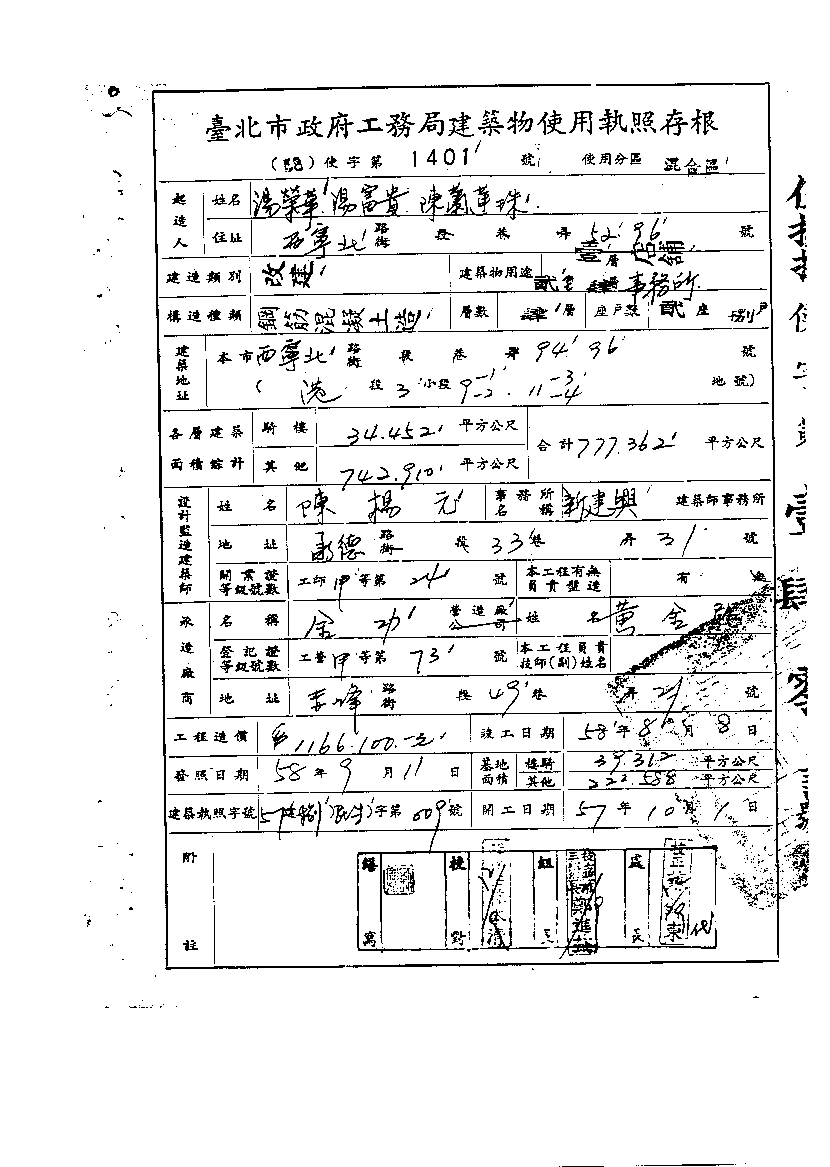 臺北市政府工務局建築物使用執照存根
(58)使字第 1401 號 使用分區 混合區
起造人 姓名 湯榮華 湯富貴 陳 珠
住址 西寧北 路街 段 巷 弄 52 96 號
建造類別 改建 建築物用途 壹層店舖 貳至肆層事務所
構造種類 鋼筋混凝土造 層數 肆層 座戶數 貳座 捌戶
建築地址 本市西寧北 路街 段 巷 弄 94 96 號
( 港 段 3 小段 9-1 9-2 11-3 11-4 地號)
各層建築面積綜計 騎樓 34.452 平方公尺 合計 777.362 平方公尺
其他 742.910 平方公尺
設計監造建築師 姓名 陳楊元 事務所名稱 新建興 建築師事務所
地址 承德 路街 段 33 巷 弄 31 號
開業證等級號數 工師甲等第 24 號 本工程有無負責監造 有 無
承造廠商 名稱 金功 營造廠公司 姓名 黃金
登記證等級號數 工營甲等第 73 號 本工程負責技師(副)姓名
地址 赤峰 路街 段 49 巷 弄 21 號
工程造價 $1166.100.-元 竣工日期 58年8月8日
發照日期 58年9月11日 基地面積 騎樓 39.312 平方公尺
其他 222.588 平方公尺
建築執照字號 57建 字第 009 號 開工日期 57年10月1日
附註
繕寫 校對 組長 處長 代